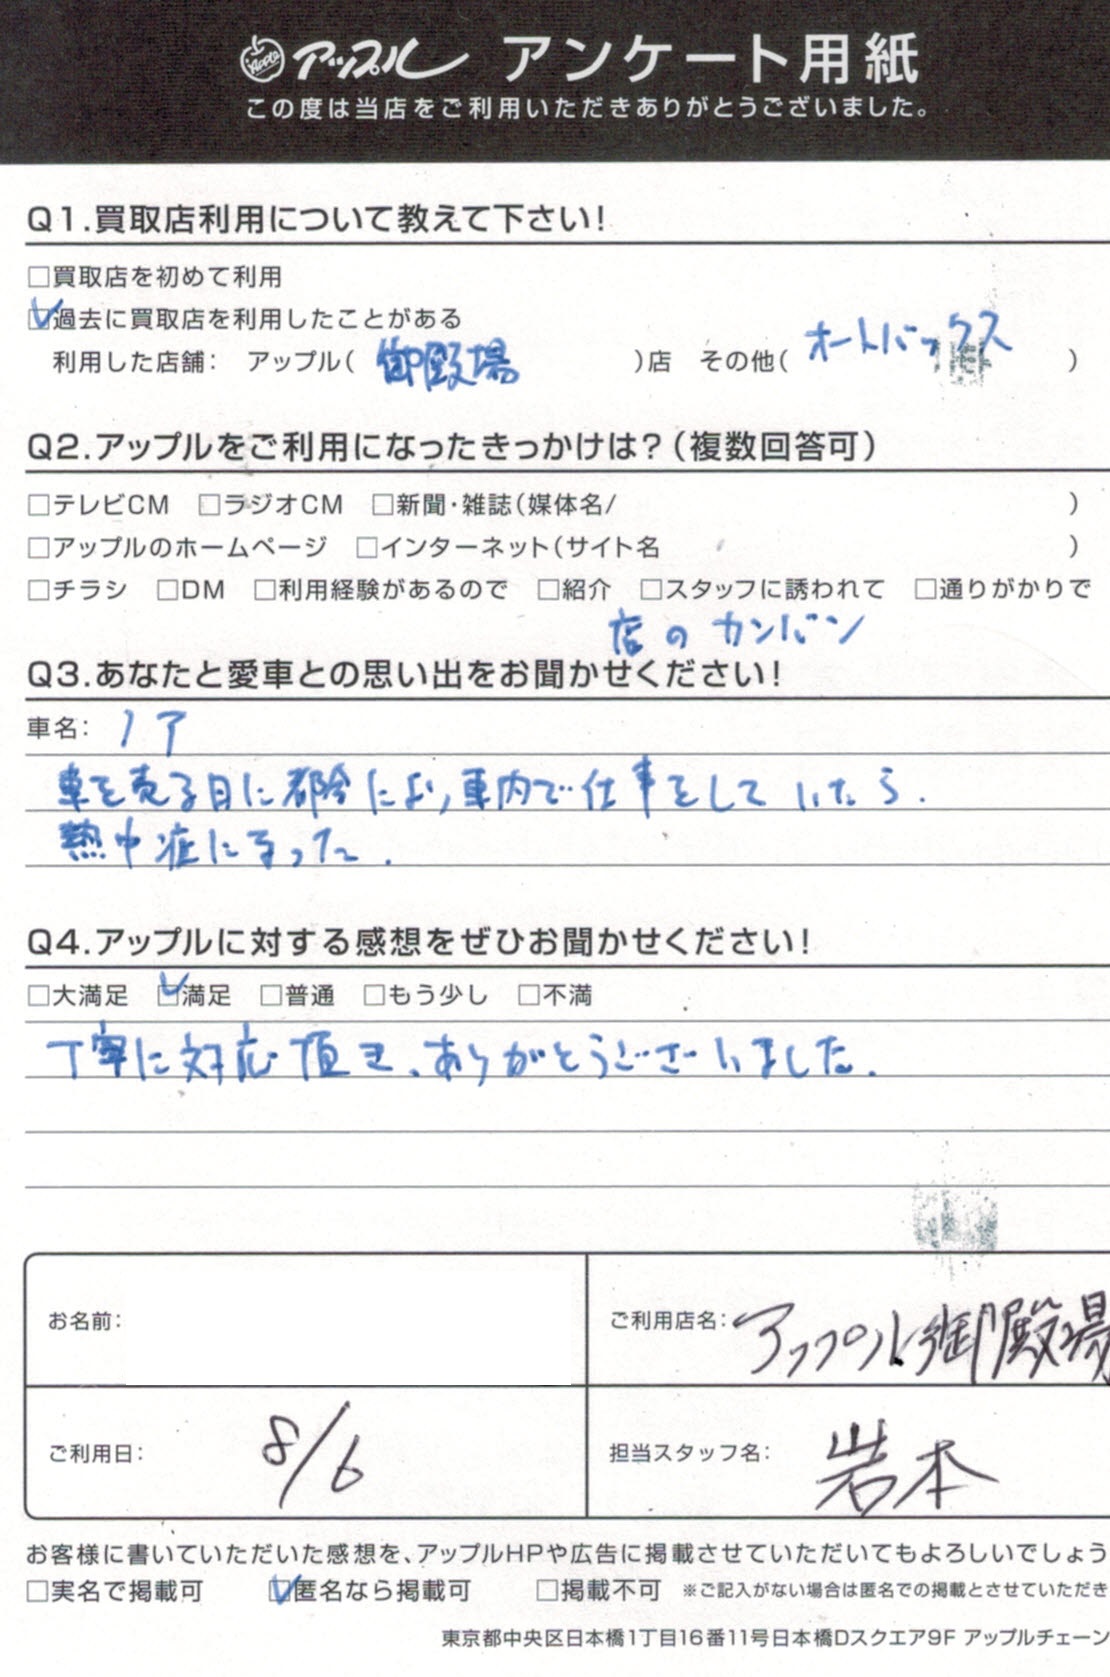 Apple アップル アンケート用紙
この度は当店をご利用いただきありがとうございました。
Q1.買取店利用について教えて下さい!
□買取店を初めて利用
☑過去に買取店を利用したことがある
利用した店舗： アップル( 御殿場 )店 その他( オートバックス )
Q2.アップルをご利用になったきっかけは?(複数回答可)
□テレビCM □ラジオCM □新聞・雑誌(媒体名/ )
□アップルのホームページ □インターネット(サイト名 )
□チラシ □DM □利用経験があるので □紹介 □スタッフに誘われて □通りがかりで
店のカンバン
Q3.あなたと愛車との思い出をお聞かせください!
車名： ノア
車を売る日に都合により、車内で仕事をしていたら、
熱中症になった。
Q4.アップルに対する感想をぜひお聞かせください!
□大満足 ☑満足 □普通 □もう少し □不満
丁寧に対応頂き、ありがとうございました。
お名前：
ご利用店名： アップル御殿場
ご利用日： 8/6
担当スタッフ名： 岩本
お客様に書いていただいた感想を、アップルHPや広告に掲載させていただいてもよろしいでしょう
□実名で掲載可 ☑匿名なら掲載可 □掲載不可 ※ご記入がない場合は匿名での掲載とさせていただき
東京都中央区日本橋1丁目16番11号日本橋Dスクエア9F アップルチェーン